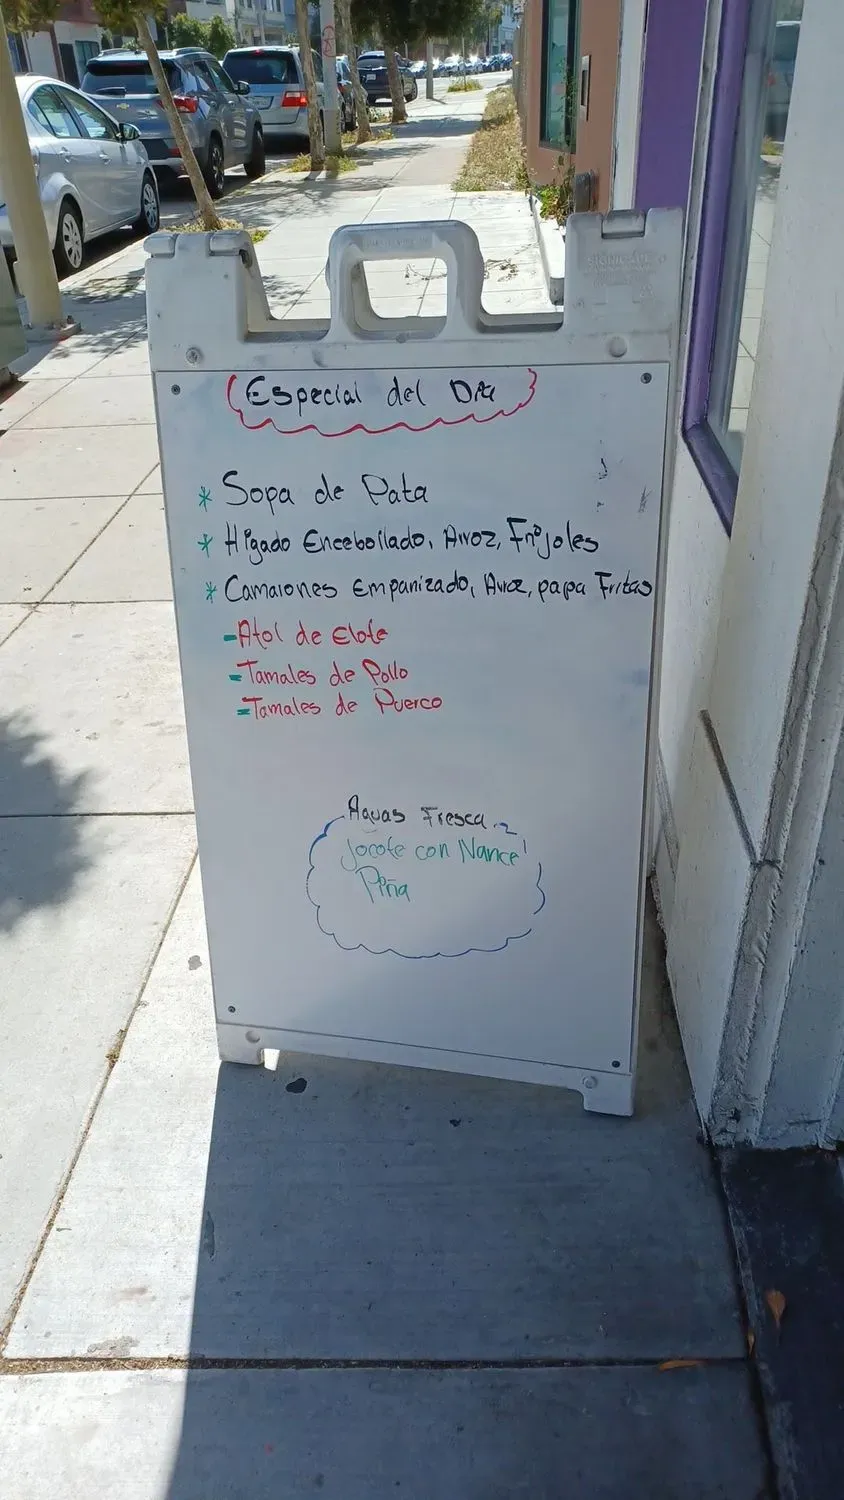 Especial del Dia
* Sopa de Pata
* Higado Encebollado, Arroz, Frijoles
* Camarones Empanizado, Arroz, papa Fritas
- Atol de Elote
= Tamales de Pollo
= Tamales de Puerco
Aguas Fresca
Jocote con Nance
Piña